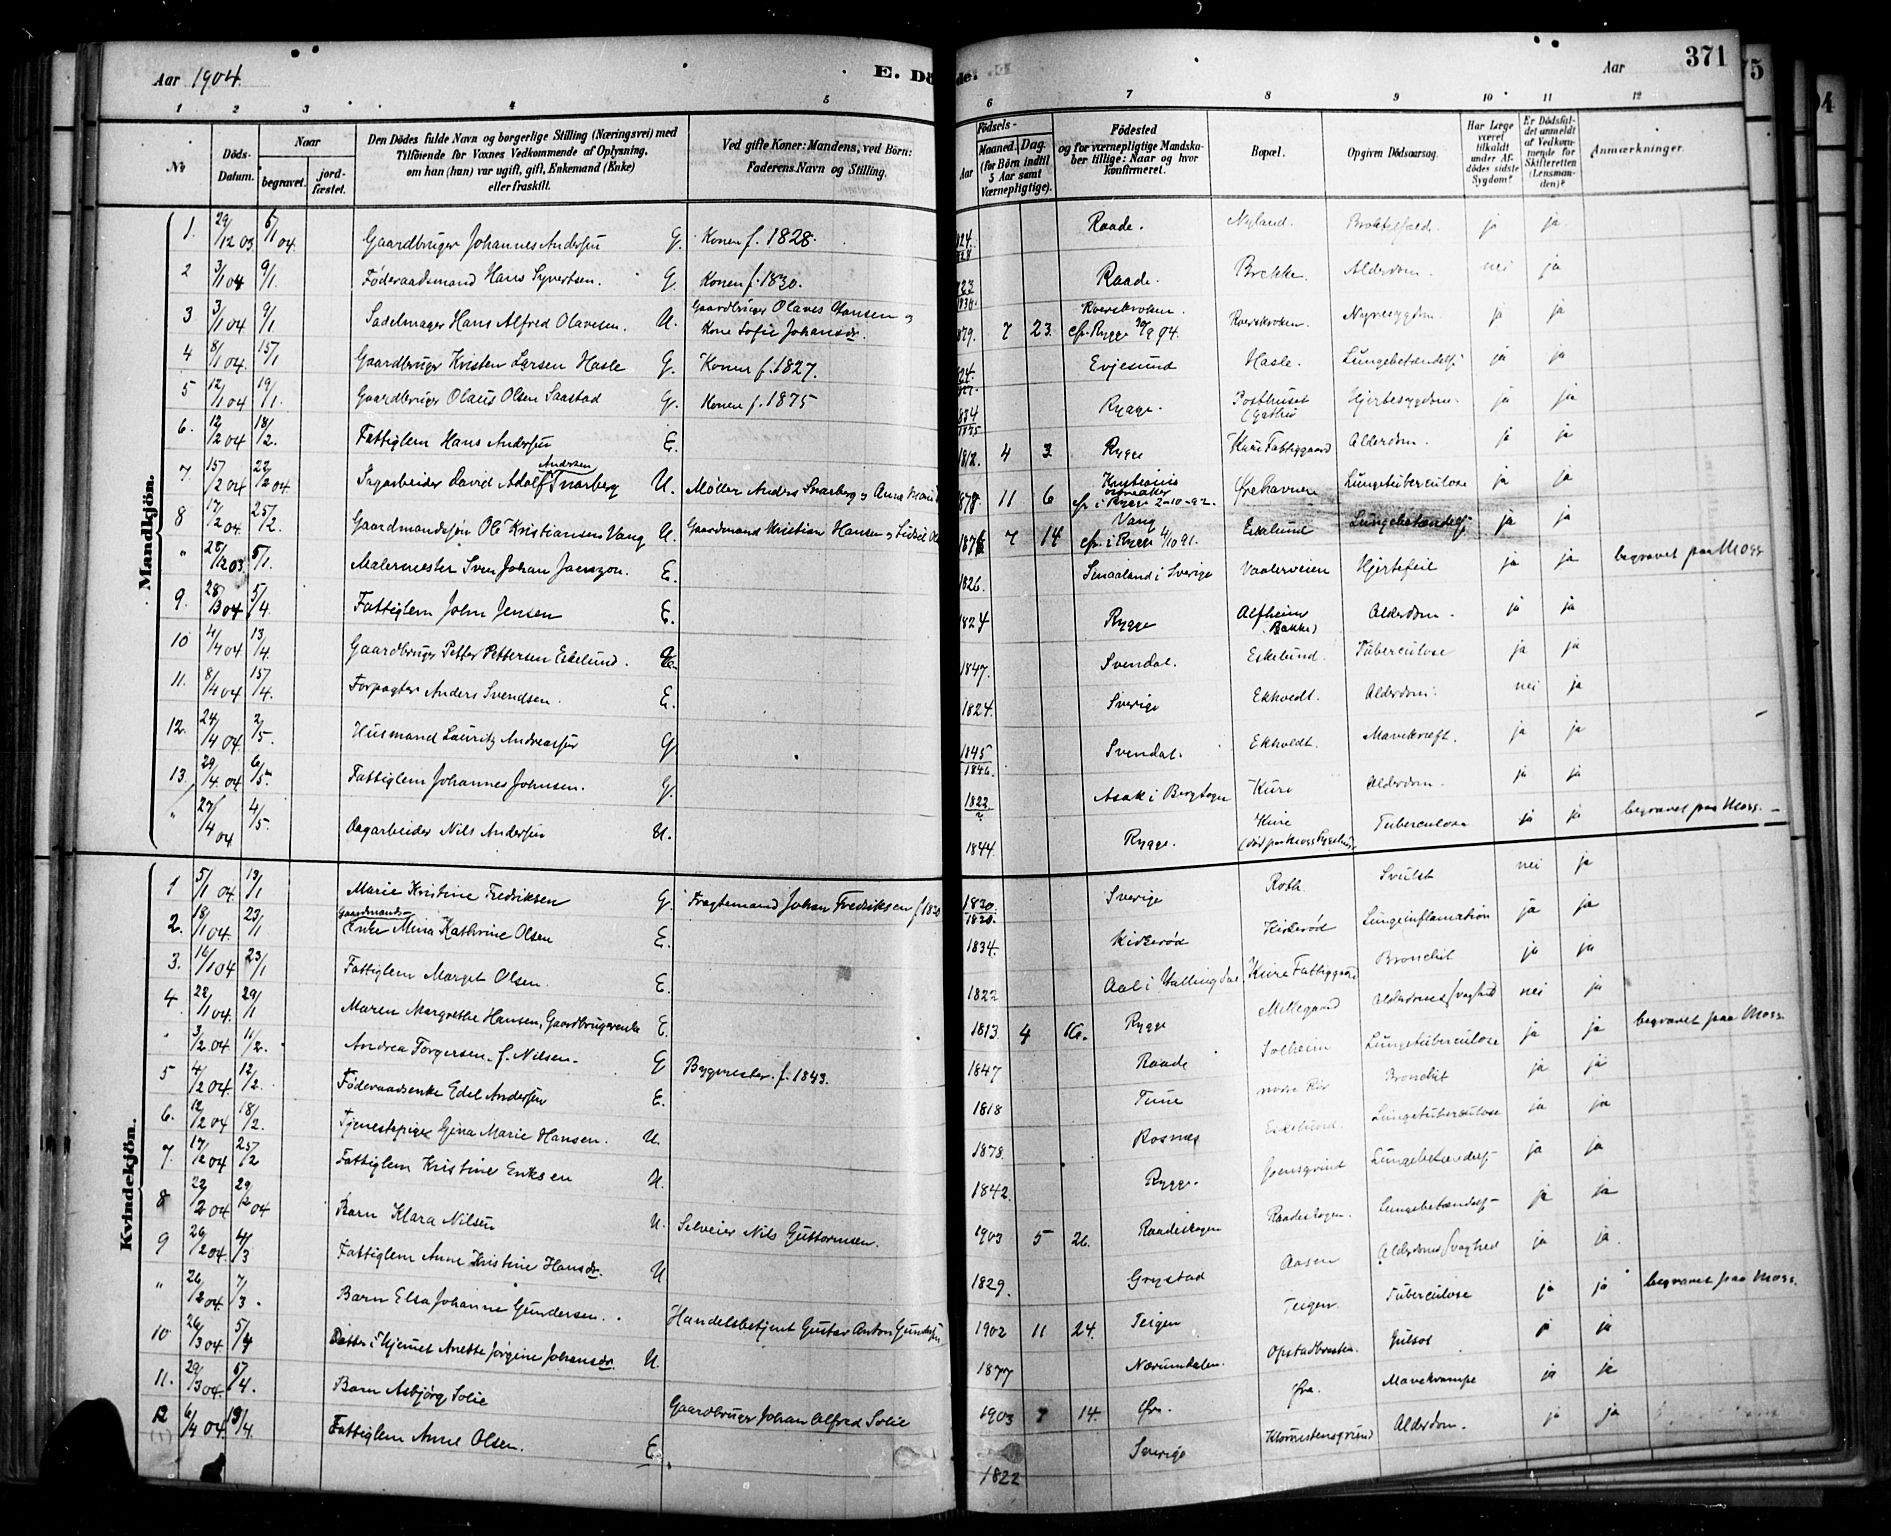 Aar 1904.
E. Dö
de.
Aar
371
75
1 2 3 4 5 6 7 8 9 10 11 12
No
Döds-Datum.
Naar
begravet.
jord-fæstet.
Den Dödes fulde Navn og borgerlige Stilling (Næringsvei) med
Tilföiende for Voxnes Vedkommende af Oplysning,
om han (hun) var ugift, gift, Enkemand (Enke)
eller fraskilt.
Ved gifte Koner: Mandens, ved Börn:
Faderens Navn og Stilling.
Födsels-
Aar
Maaned. Dag.
(for Börn indtil
5 Aar samt
Værnepligtige).
Födested
og for værnepligtige Mandska-
ber tillige: Naar og hvor
konfirmeret.
Bopæl.
Opgiven Dödsaarsag.
Har Læge
været
tilkaldt
under Af-
dödes sidste
Sygdom?
Er Dödsfal-
det anmeldt
af Vedkom-
mende for
Skifteretten
(Lensman-
den)?
Anmærkninger.
Mandkjön.
1. 29/12 03 6/1 04. Gaardbruger Johannes Andersen G. Konen f. 1828. Raade. Nyland. ja ja
2 3/1 04 9/1. Föderaadsmand Hans Syvertsen. G. Konen f. 1830. Raade. Brekke. Alderdom. nei ja
3 3/1 04 9/1. Sadelmager Hans Alfred Olavesen. U. Gaardbruger Olaves Hansen og Kone Sofie Johansdr. 1879. 7 23. Roerskroken. cfr. Rygge 30/9 94. Roerskroken. Nyresygdom. ja ja
4 8/1 04. 15/1 Gaardbruger Kristen Larsen Hasle G. Konen f. 1827. Evjesund Hasle. Lungebetændelse ja ja
5 12/1 04 19/1. Gaardbruger Olaus Olsen Saastad G. Konen f. 1875 1834 Rygge. Posthuset Hjertesygdom. ja ja
6. 12/2 04 18/2. Fattiglem Hans Andersen E. 1812. 4 3 Rygge Kure Fattiggaard Alderdom. ja ja
7. 15/2 04 22/2 04. Sagarbeider David Adolf Andersen Snarberg U. Møller Anders Snarberg og Anna 11 6 cfr i Rygge 2-10-92. Ørehavnen Lungetuberculose ja ja
8 17/2 04. 25/2. Gaardmandssøn Ole Kristiansen Vang U. Gaardmand Kristian Hansen og 7 14 Vang cfr. i Rygge 4/10 91. Eskelund Lungebetændelse ja ja
" 25/12 03 5/1. Malermester Sven Johan Jaenzon. E. 1826. Smaaland i Sverige Vaalerveien Hjertefeil ja ja begravet paa Moss
9. 28/3 04 5/4. Fattiglem John Jensen E. 1824 Rygge Alfheim (Bakke) Alderdom. ja ja
10 4/4 04 13/4. Gaardbruger Petter Pettersen Eskelund. 1847. Svendal. Eskelund. Tuberculose ja ja
11. 8/4 04 15/4. Forpagter Anders Svendsen. E. 1824. Sverige Ekholdt. Alderdom. nei ja
12. 24/4 04. 2/5. Husmand Lauritz Andreassen G. 1845 1846. Svendal. Ekholdt. Mavekræft. ja ja
13. 29/4 04 6/5 Fattiglem Johannes Johnsen. G. 1822 ? Asak i Bergsogn Kure Alderdom. ja ja
" 27/4 04 4/5. Dagarbeider Nils Andersen U. 1844. Rygge. Kure (død paa Moss Sygehus) Tuberculose ja ja begravet paa Moss. –
Kvindekjön.
1 5/1 04 13/1 Marie Kristine Fredriksen G. Fragtemand Johan Fredriksen f. 1820 1830. 1820. Sverige Roth. Svulst nei ja
2. 18/1 04. 23/1 Gaardmands Enke Mina Kathrine Olsen E. 1834. Kirkerød Kirkerød Lungeinflamation ja ja
3. 16/1 04 23/1 Fattiglem Marget Olsen. E. 1822 Aal i Hallingdal Kure Fattiggaard Bronchit ja ja
4. 22/1 04. 29/1 Maren Margrethe Hansen, Gaardbrugerenke E. 1813 4 16. Rygge Melegaard Alderdomssvaghed nei ja
" 3/2 04 11/2. Andrea Torgersen. f. Nilsen. G Bygmester. f. 1843. 1847 Raade Solheim Lungetuberculose ja ja begravet paa Moss.
5 4/2 04. 12/2. Föderaadsenke Edel Andersen E. 1818 Tune nedre Rör Bronchit ja ja
6. 12/2 04 18/2. Tjenestepige Gina Marie Hansen. U. 1878. Rosnæs Eskelund. Lungetuberculose ja ja
7. 17/2 04 25/2 Fattiglem Kristine Eriksen U. 1842. Rygge. Jonsgrind Lungebetændelse ja ja
8 22/2 04 29/2 04 Barn Klara Nilsen U. Selveier Nils Guttormsen. 1903 5 26. Raadeskogen Raadeskogen. Lungebetændelse ja ja
9 26/2 04. 4/3 Fattiglem Anne Kristine Hansdr. U 1829. Grystad Aasen Alderdomssvaghed ja ja.
" 26/2 04. 7/3. Barn Elsa Johanne Gundersen. Handelsbetjent Gustav Anton Gundersen 1902 11 24. Teigen Teigen Tuberculose ja ja begravet paa Moss.
10 26/3 04 5/4 Datter i Hjemmet Anette Jørgine Johansdr. U. 1877 Nærumdalen. Opstadbraaten. Gulsot ja ja
11. 29/3 04. 5/4. Barn Asbjørg Solie Gaardbruger Johan Alfred Solie 1903 14. Øra. Øra. Mavekrampe ja ja
12 6/4 04 13/4. Fattiglem Anne Olsen. E. 1822 Sverige Klommestensgrind Alderdom. ja ja